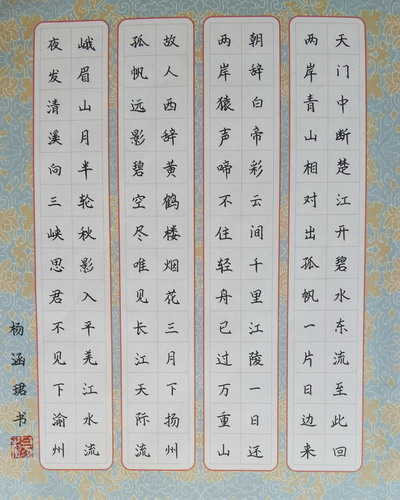 天门中断楚江开碧水东流至此回
两岸青山相对出孤帆一片日边来
朝辞白帝彩云间千里江陵一日还
两岸猿声啼不住轻舟已过万重山
故人西辞黄鹤楼烟花三月下扬州
孤帆远影碧空尽唯见长江天际流
峨眉山月半轮秋影入平羌江水流
夜发清溪向三峡思君不见下渝州
杨涵珺书